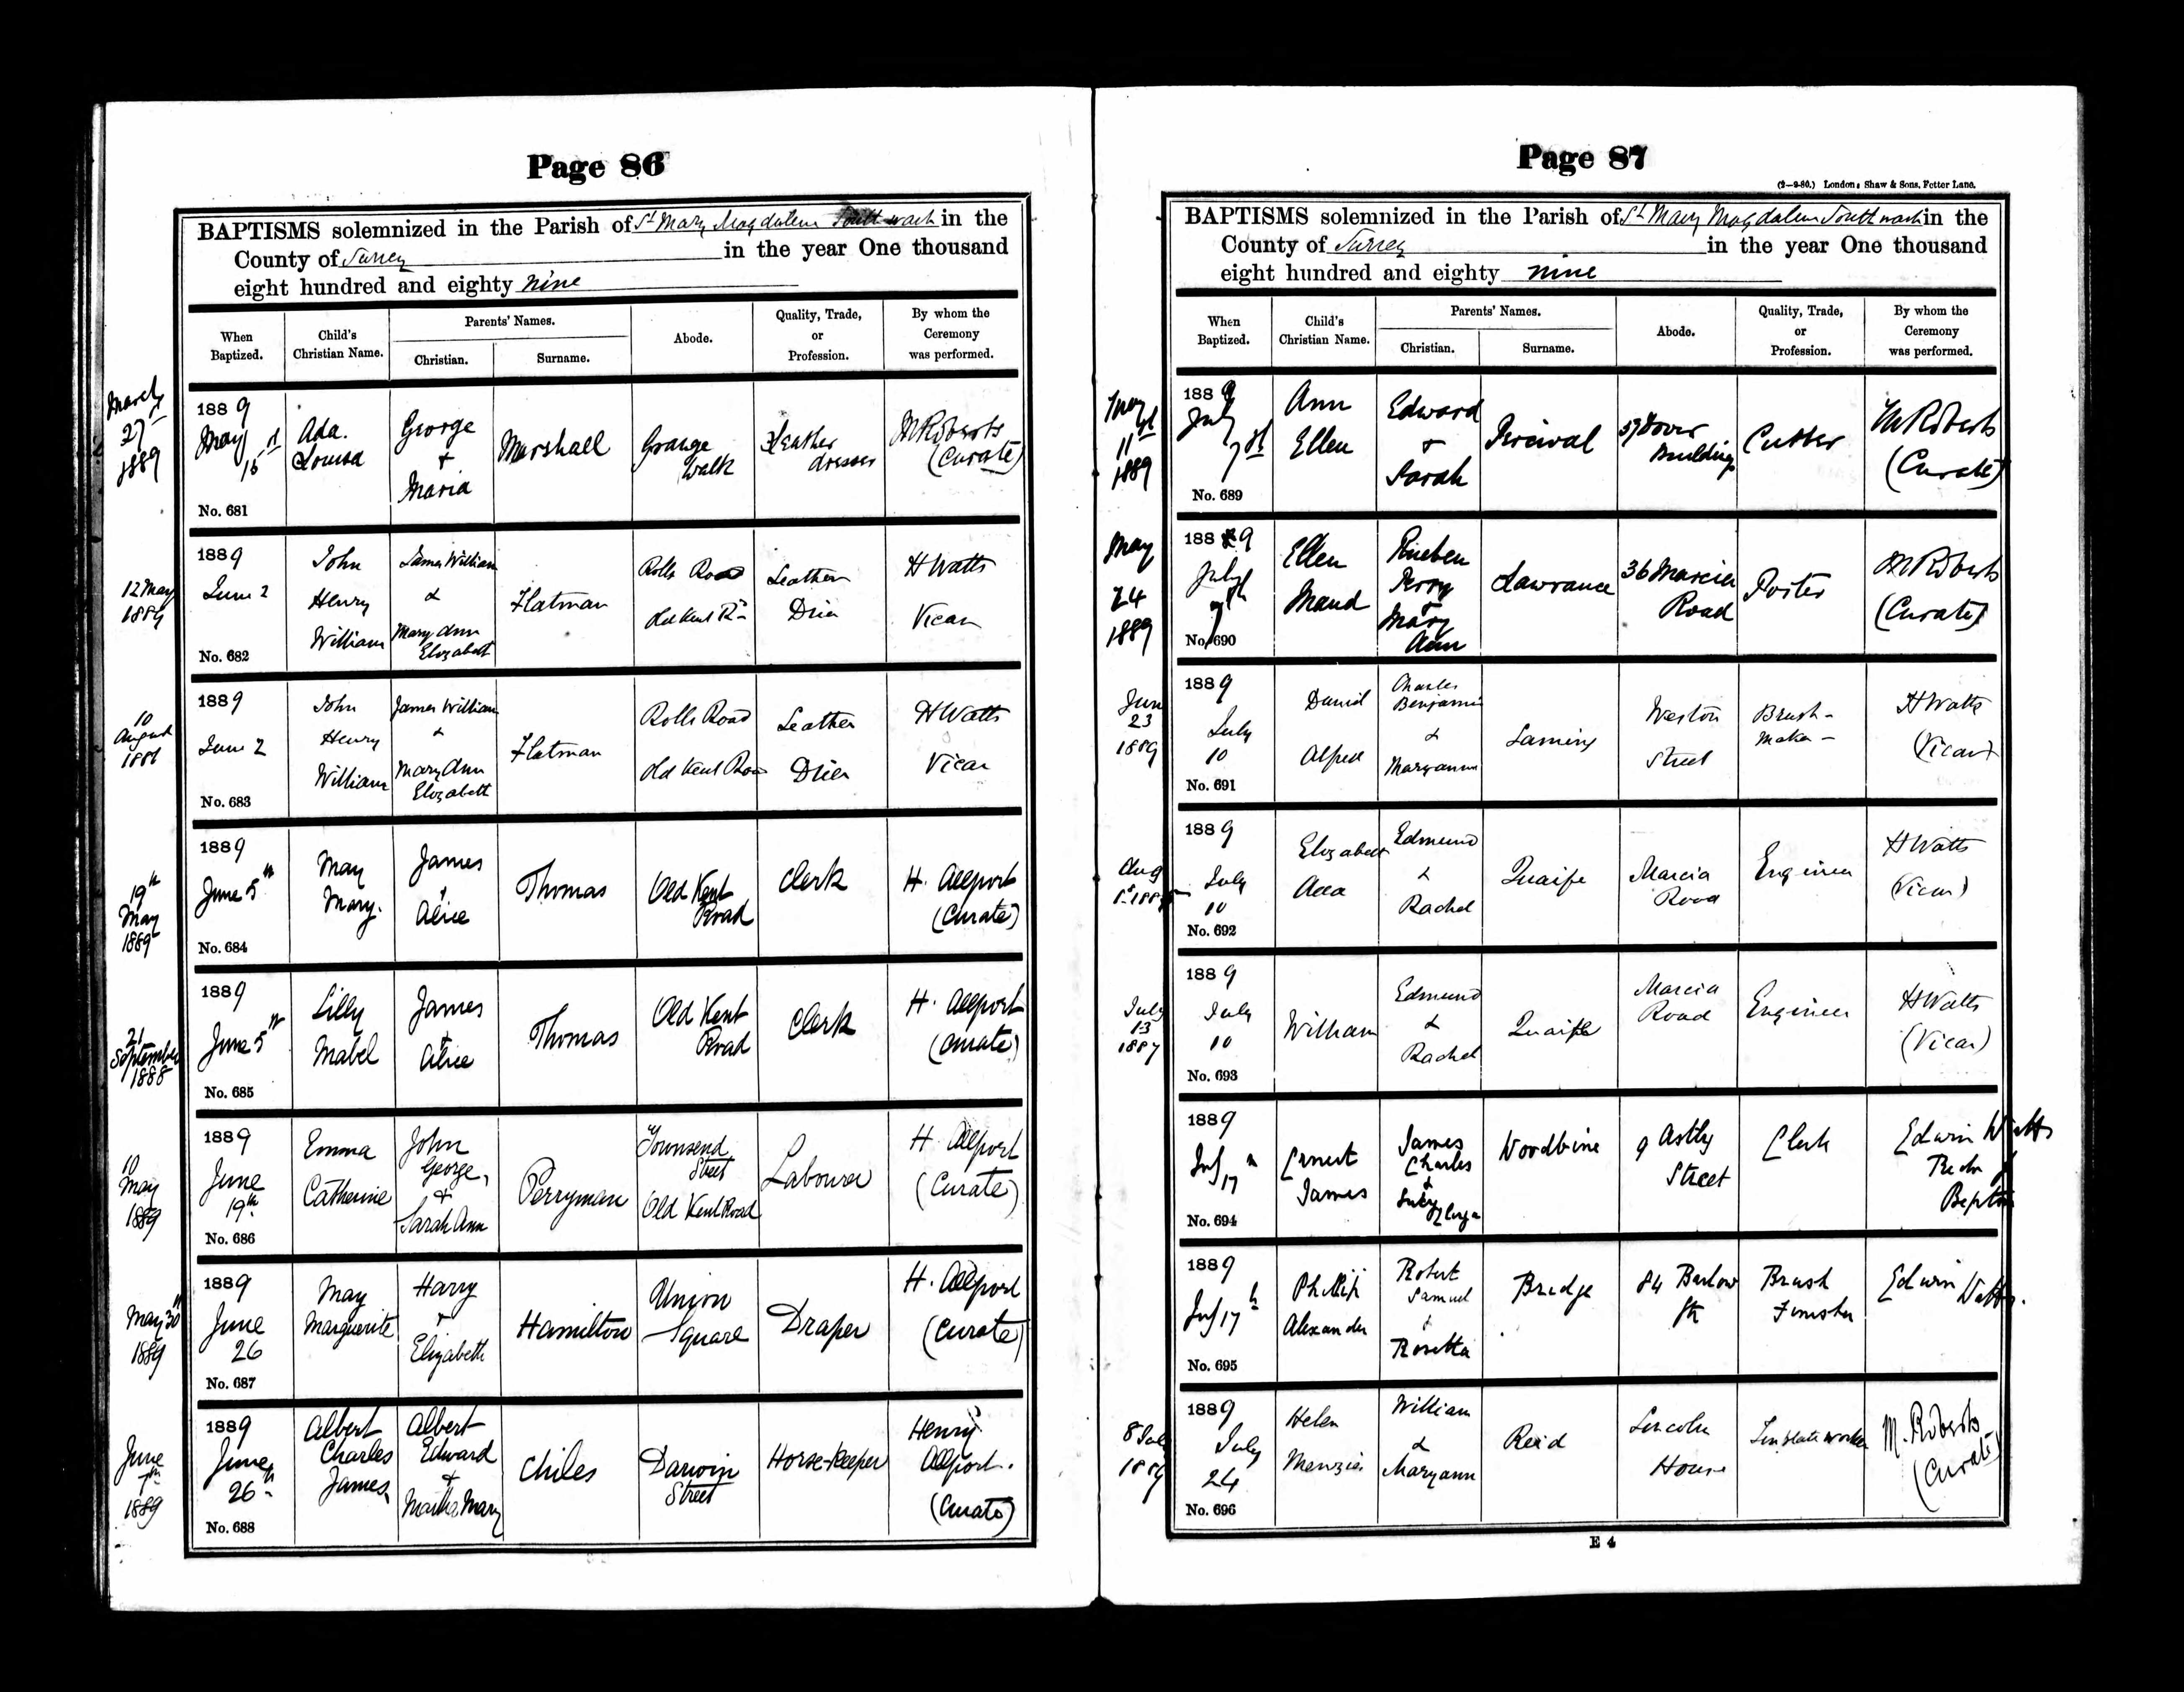 Page 86
BAPTISMS solemnized in the Parish of St Mary Magdalen Southwark in the
County of Surrey in the year One thousand
eight hundred and eighty nine
When Baptized.
Child's Christian Name.
Parents' Names.
Christian.
Surname.
Abode.
Quality, Trade, or Profession.
By whom the Ceremony was performed.
March
27
1889
1889
May
15
No. 681
Ada.
Louisa
George
+
Maria
Marshall
Grange
Walk
Leather
dresser
M Roberts
(Curate)
12 May
1889
1889
June 2
No. 682
John
Henry
William
James William
&
Mary Ann
Elizabeth
Flatman
Rolls Road
Old Kent Rd
Leather
Drier
H Watts
Vicar
10
August
1889
June 2
No. 683
John
Henry
William
James William
&
Mary Ann
Elizabeth
Flatman
Rolls Road
Old Kent Road
Leather
Drier
H Watts
Vicar
19th
May
1889
1889
June 5th
No. 684
May
Mary.
James
&
Alice
Thomas
Old Kent
Road
Clerk
H. Allport
(Curate)
21
September
1888
1889
June 5th
No. 685
Lilly
Mabel
James
+
Alice
Thomas
Old Kent
Road
Clerk
H. Allport
(Curate)
10
May
1889
1889
June
19th
No. 686
Emma
Catherine
John
George,
+
Sarah Ann
Perryman
Townsend
Street
Old Kent Road
Labourer
H. Allport
(Curate)
May 30th
1889
1889
June
26
No. 687
May
Marguerite
Harry
+
Elizabeth
Hamilton
Union
Square
Draper
H. Allport
(Curate)
June
7th
1889
1889
June
26th
No. 688
Albert
Charles
James
Albert
Edward
+
Martha Mary
Chiles
Darwin
Street
Horse-keeper
Henry
Allport.
(Curate)
Page 87
(2—9-80.) London: Shaw & Sons, Fetter Lane.
BAPTISMS solemnized in the Parish of St Mary Magdalen Southwark in the
County of Surrey in the year One thousand
eight hundred and eighty nine
When Baptized.
Child's Christian Name.
Parents' Names.
Christian.
Surname.
Abode.
Quality, Trade, or Profession.
By whom the Ceremony was performed.
May
11
1889
1889
July
7
No. 689
Ann
Ellen
Edward
+
Sarah
Percival
Dover
Buildings
Cutter
M Roberts
(Curate)
May
24
1889
1889
July
7th
No. 690
Ellen
Maud
Rueben
Perry
+
Mary
Ann
Lawrance
36 Marcia
Road
Porter
M Roberts
(Curate)
Jun
23
1889
1889
July
10
No. 691
Daniel
Alfred
Charles
Benjamin
&
Maryanne
Laming
Weston
Street
Brush-
maker-
H Watts
(Vicar)
Aug
1889
July
10
No. 692
Elizabeth
Ada
Edmund
&
Rachel
Quaife
Marcia
Road
Engineer
H Watts
(Vicar)
July
13
1887
1889
July
10
No. 693
William
Edmund
&
Rachel
Quaife
Marcia
Road
Engineer
H Watts
(Vicar)
1889
July
17
No. 694
Ernest
James
James
Charles
&
Woodbine
9 Astley
Street
Clerk
Edwin Watts
Rector of
Bepton
1889
July 17th
No. 695
Phillip
Alexander
Robert
Samuel
&
Rosetta
Bridge
84 Barlow
St
Brush
Finisher
Edwin Watts.
8 July
1889
1889
July
24
No. 696
Helen
Menzies
William
&
Maryann
Reid
Lincoln
House
Tinplate worker
M. Roberts
(Curate)
E 4